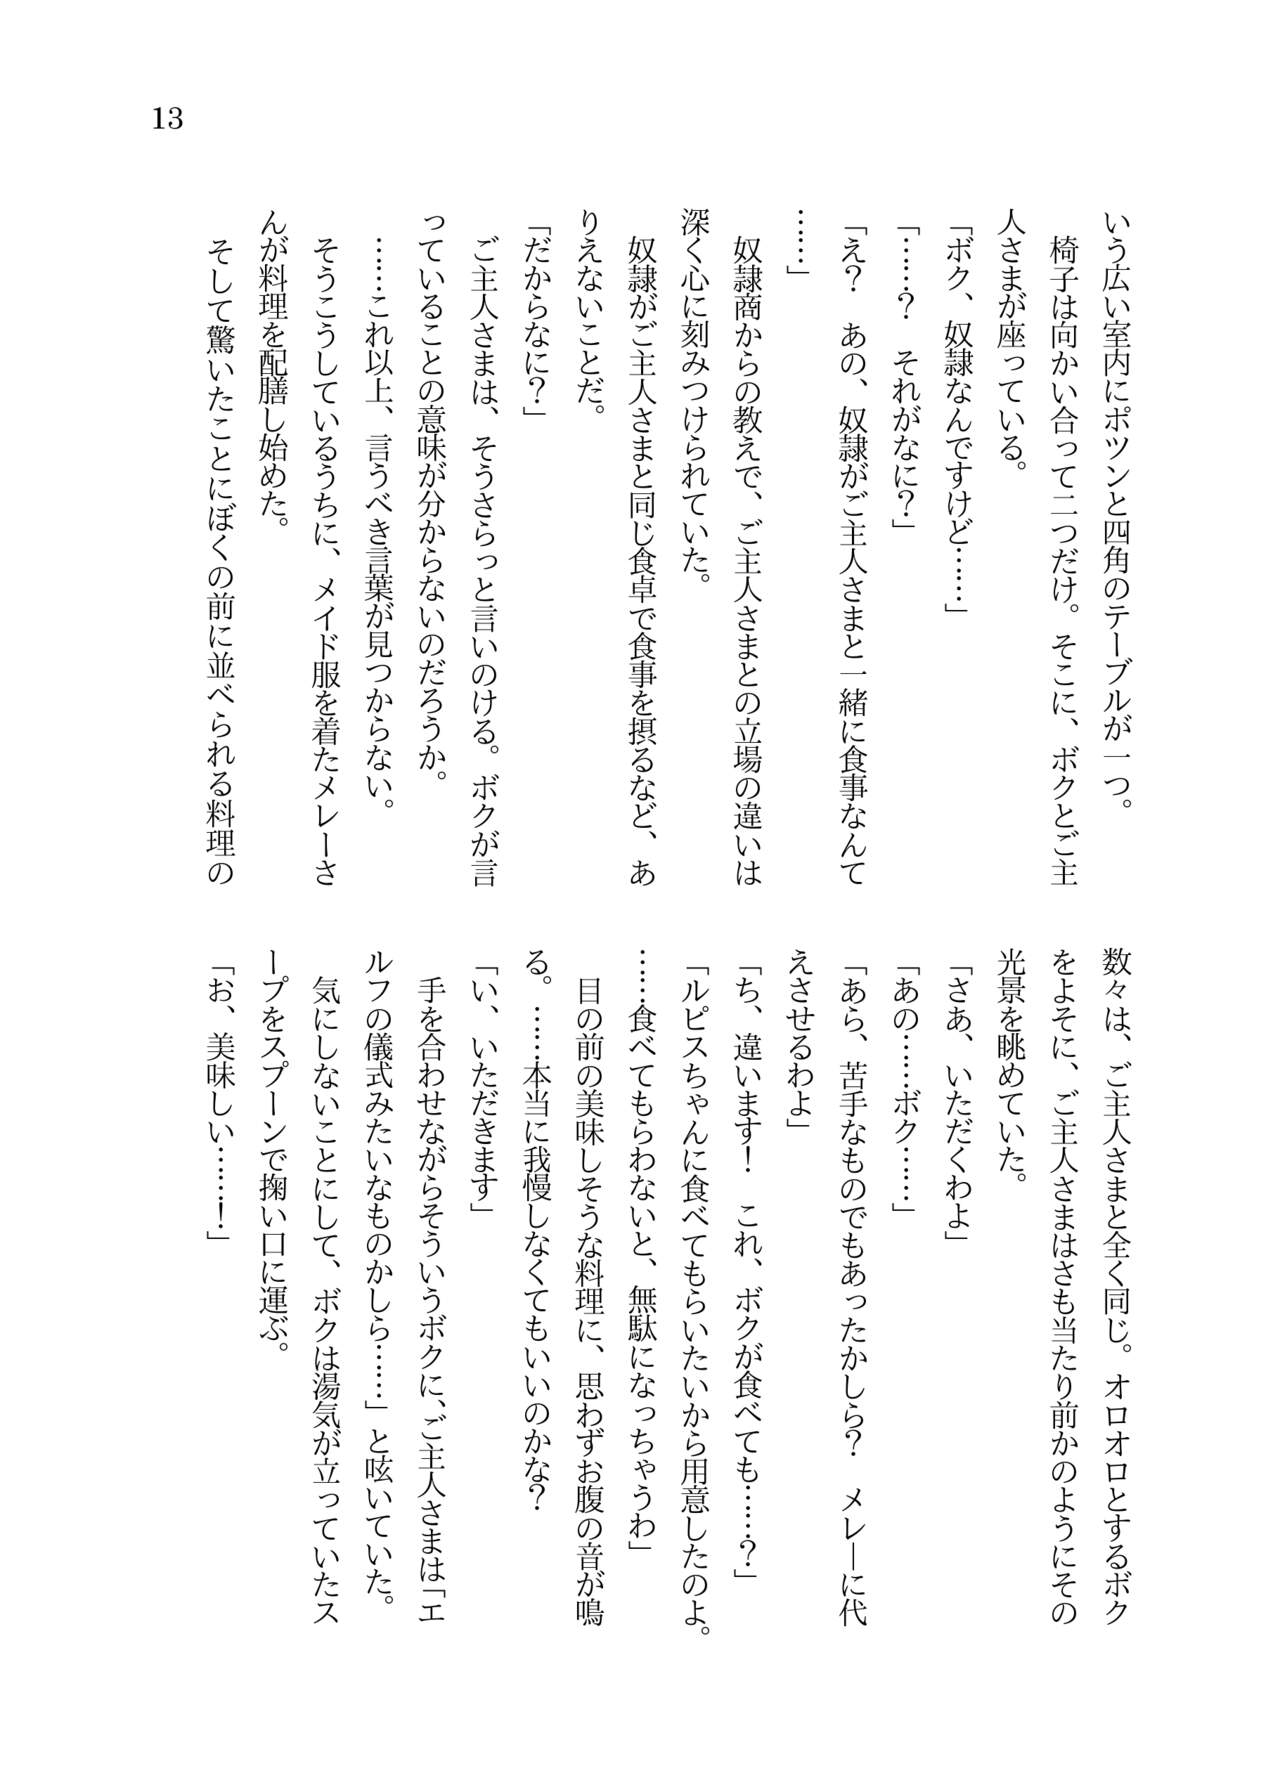 13
いう広い室内にポツンと四角のテーブルが一つ。
椅子は向かい合って二つだけ。そこに、ボクとご主
人さまが座っている。
「ボク、奴隷なんですけど……」
「……？　それがなに？」
「え？　あの、奴隷がご主人さまと一緒に食事なんて
……」
奴隷商からの教えで、ご主人さまとの立場の違いは
深く心に刻みつけられていた。
奴隷がご主人さまと同じ食卓で食事を摂るなど、あ
りえないことだ。
「だからなに？」
ご主人さまは、そうさらっと言いのける。ボクが言
っていることの意味が分からないのだろうか。
……これ以上、言うべき言葉が見つからない。
そうこうしているうちに、メイド服を着たメレーさ
んが料理を配膳し始めた。
そして驚いたことにぼくの前に並べられる料理の
数々は、ご主人さまと全く同じ。オロオロとするボク
をよそに、ご主人さまはさも当たり前かのようにその
光景を眺めていた。
「さあ、いただくわよ」
「あの……ボク……」
「あら、苦手なものでもあったかしら？　メレーに代
えさせるわよ」
「ち、違います！　これ、ボクが食べても……？」
「ルピスちゃんに食べてもらいたいから用意したのよ。
……食べてもらわないと、無駄になっちゃうわ」
目の前の美味しそうな料理に、思わずお腹の音が鳴
る。……本当に我慢しなくてもいいのかな？
「い、いただきます」
手を合わせながらそういうボクに、ご主人さまは「エ
ルフの儀式みたいなものかしら……」と呟いていた。
気にしないことにして、ボクは湯気が立っていたス
ープをスプーンで掬い口に運ぶ。
「お、美味しい……！」